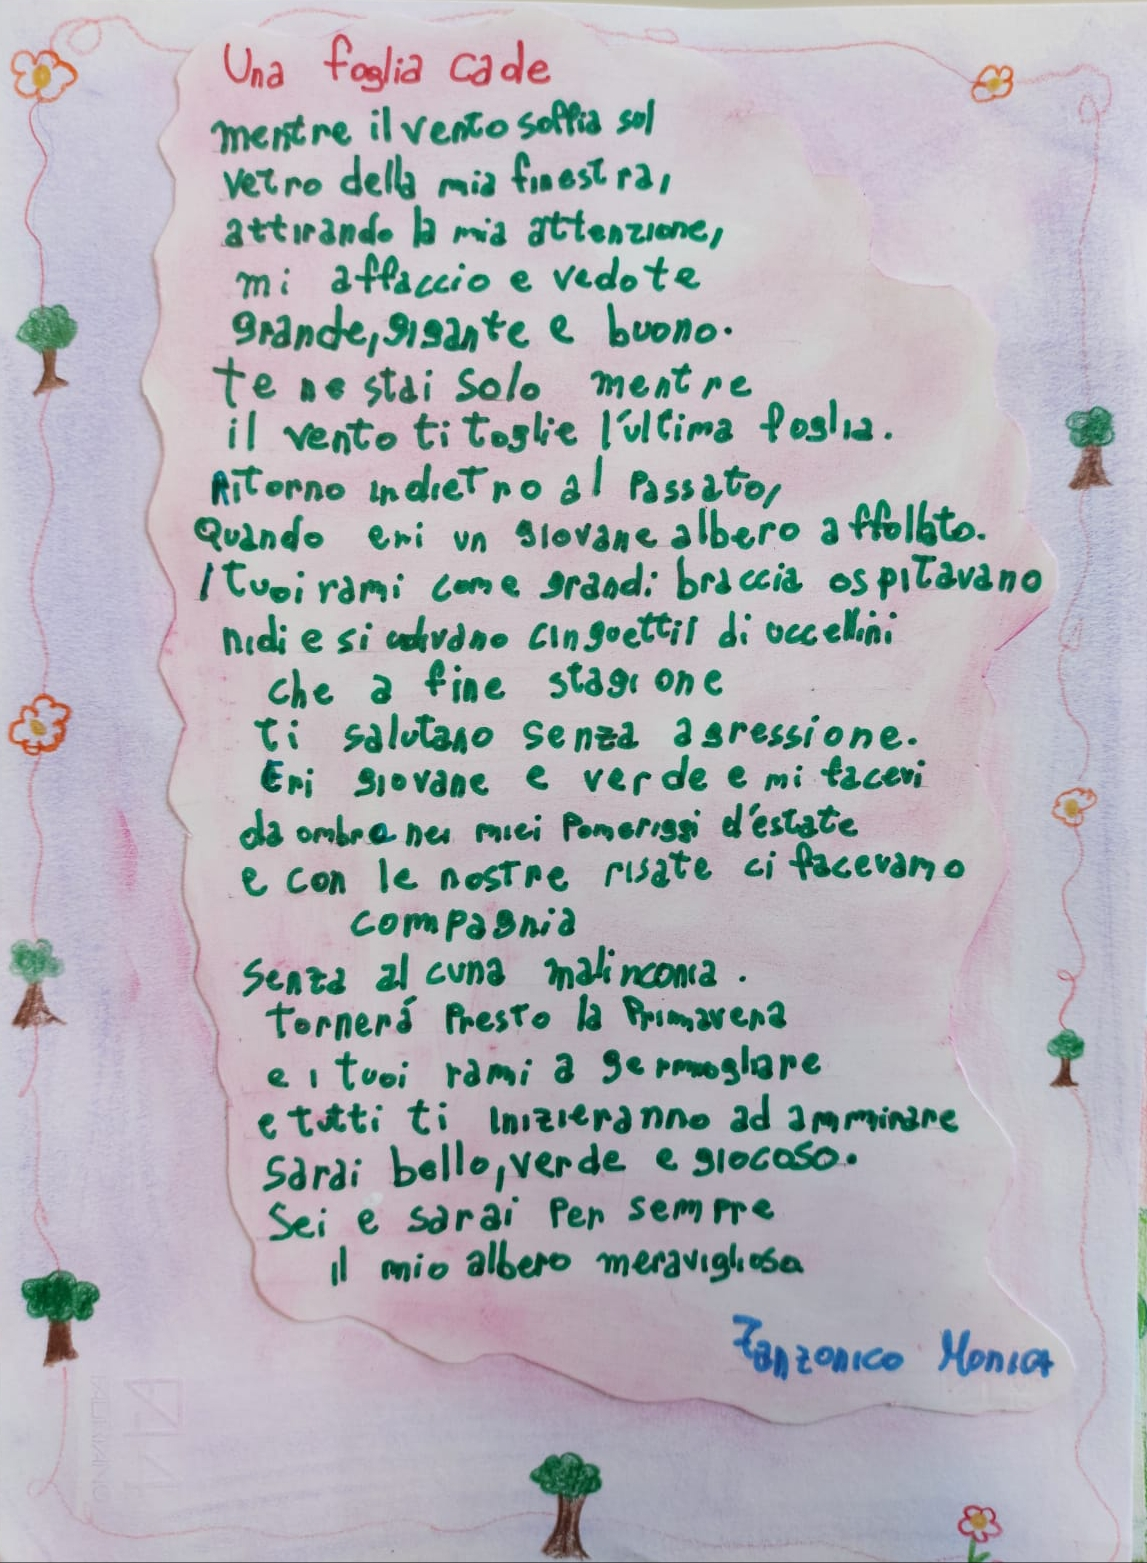 Una foglia cade
mentre il vento soffia sul
vetro della mia finestra,
attirando la mia attenzione,
mi affaccio e vedo te
grande, gigante e buono.
te ne stai solo mentre
il vento ti toglie l'ultima foglia.
Ritorno indietro al passato,
Quando eri un giovane albero affollato.
I tuoi rami come grandi braccia ospitavano
nidi e si udivano cinguettii di uccellini
che a fine stagione
ti salutano senza agressione.
Eri giovane e verde e mi facevi
da ombra nei miei pomeriggi d'estate
e con le nostre risate ci facevamo
compagnia
senza alcuna malinconia.
tornerá presto la primavera
e i tuoi rami a germogliare
e tutti ti inizieranno ad ammirare
sarai bello, verde e giocoso.
Sei e sarai per sempre
il mio albero meraviglioso
Zanzonico Monica